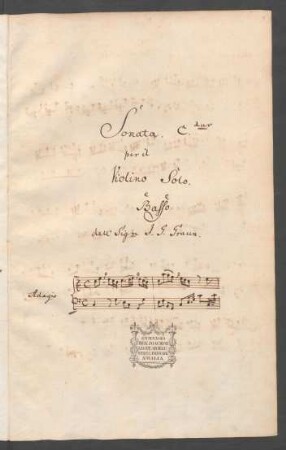 Sonata. C. dur
per il
Violino Solo.
è
Basso.
dell Sigr. J. G. Graun.
Adagio